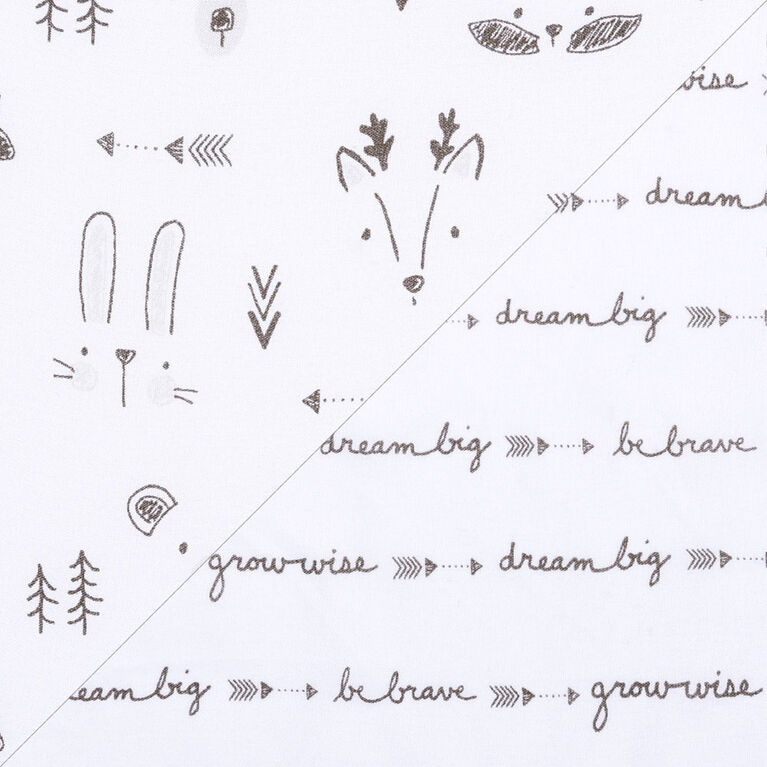 wise
dream
dream big
dream big be brave
grow wise dream big
eam big be brave grow wise